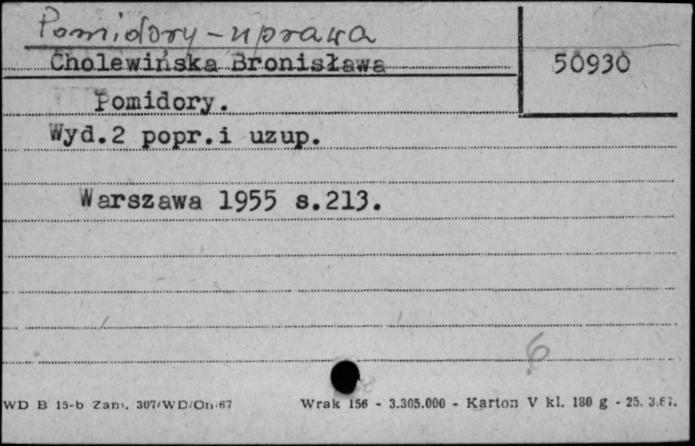 Pomidory - uprawa
Cholewińska Bronisława
50930
Pomidory.
Wyd.2 popr.i uzup.
Warszawa 1955 s.213.
6
WD B 15-b Zam. 307/WD/On/67 Wrak 156 - 3.305.000 - Karton V kl. 180 g - 25. 3.67.